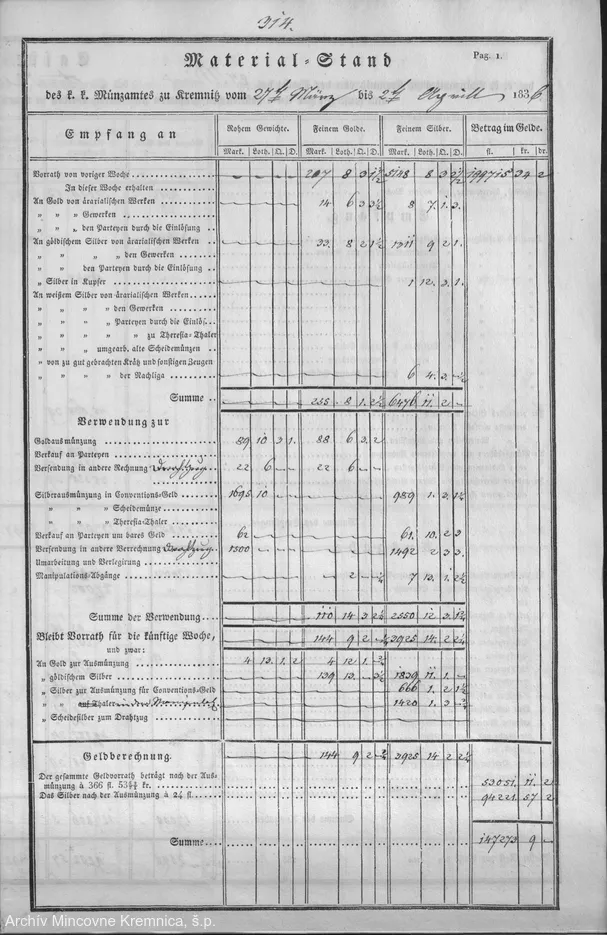 314.
Material-Stand
Pag. 1.
des k. k. Münzamtes zu Kremnitz vom 27t März bis 2t Aprill 1836.
Empfang an
Rohem Gewichte. Feinem Golde. Feinem Silber. Betrag im Gelde.
Mark. Loth. Q. D. Mark. Loth. Q. D. Mark. Loth. Q. D. fl. kr. dr.
Vorrath von voriger Woche 207 8 3 5148 8 3 199715 34 2
In dieser Woche erhalten
An Gold von ärarialischen Werken 14 6 3 8 7. 1. 3.
„ „ „ Gewerken
„ „ „ den Parteyen durch die Einlösung
An göldischem Silber von ärarialischen Werken 33. 8 2 1½ 1311 9 2 1.
„ „ „ den Gewerken
„ „ den Parteyen durch die Einlösung
„ Silber in Kupfer 1 12. 3. 1.
An weißem Silber von ärarialischen Werken
„ „ „ „ den Gewerken
„ „ „ „ Parteyen durch die Einlös.
„ „ „ „ „ zu Theresia-Thaler
„ „ „ umgearb. alte Scheidemünzen
„ von zu gut gebrachten Krätz und sonstigen Zeugen
„ „ „ „ der Nachliga 6 4. 3.
Summe 255 8 1. 2½ 6476 11. 2
Verwendung zur
Goldausmünzung 89 10 3 1. 88 6 3. 2
Verkauf an Parteyen
Versendung in andere Rechnung Drahtzug 22 6 22 6
Silberausmünzung in Conventions-Geld 1695 10 989 1. 3 1½
„ „ Scheidemünze
„ „ Theresia-Thaler
Verkauf an Parteyen um bares Geld 62 61. 10. 2 3
Versendung in andere Verrechnung Drahtzug 1500 1492 2 3 3.
Umarbeitung und Verlegerung
Manipulations-Abgänge 2 7 13. 1. 2½
Summe der Verwendung 110 14 3 2½ 2550 12 3. 1½
Bleibt Vorrath für die künftige Woche, 144 9 2 3925 14. 2 2½
und zwar:
An Gold zur Ausmünzung 4 13. 1. 2 4 12 1.
„ göldischem Silber 139 13. 1839 11. 1.
„ Silber zur Ausmünzung für Conventions-Geld 666 1. 2 1½
„ „ auf Thaler 1420 1. 3
„ Scheidesilber zum Drahtzug
Geldberechnung. 144 9 2 3925 14 2 2½
Der gesammte Geldvorrath beträgt nach der Aus-
münzung à 366 fl. kr. 53051. 11. 2
Das Silber nach der Ausmünzung à 24 fl. 94221 57 2
Summe 147273 9
Archív Mincovne Kremnica, š.p.